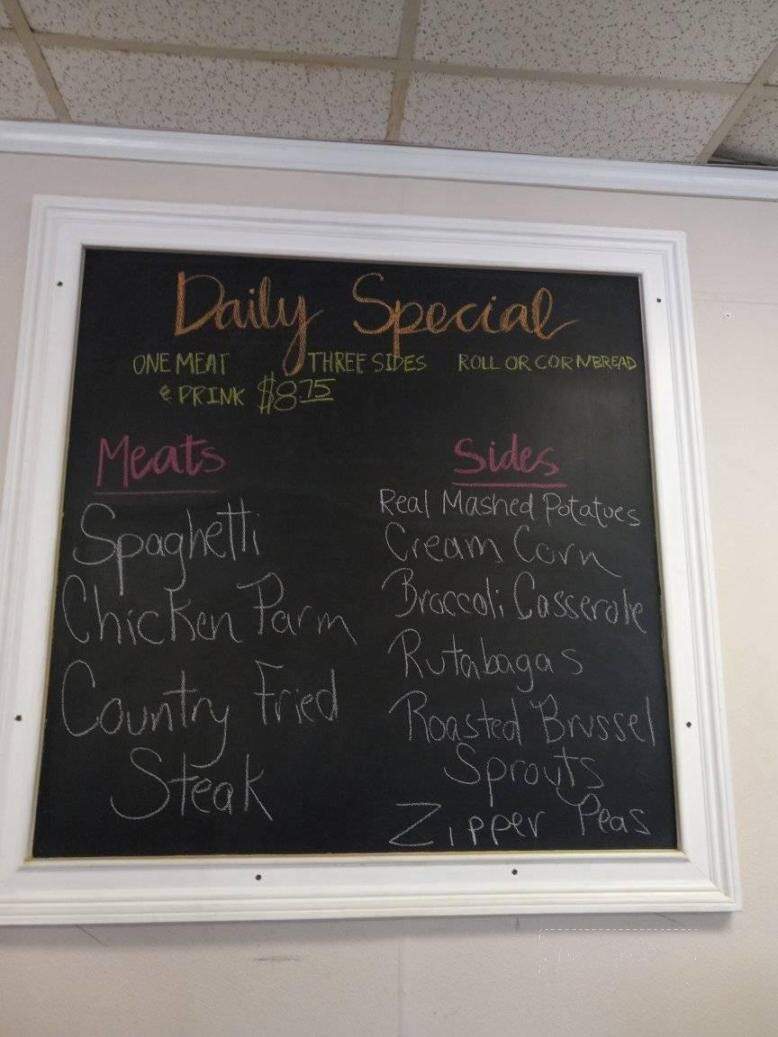 Daily Special
ONE MEAT THREE SIDES ROLL OR CORNBREAD
& DRINK $8.75
Meats
Spaghetti
Chicken Parm
Country Fried
Steak
Sides
Real Mashed Potatoes
Cream Corn
Broccoli Casserole
Rutabagas
Roasted Brussel
Sprouts
Zipper Peas